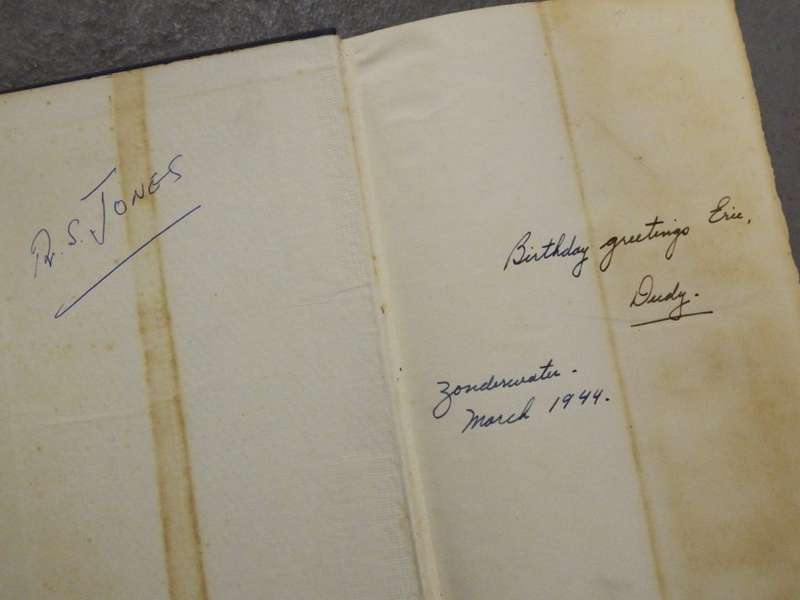 R. S. JONES
Birthday greetings Eric,
Dudy.
Zonderwater.
March 1944.